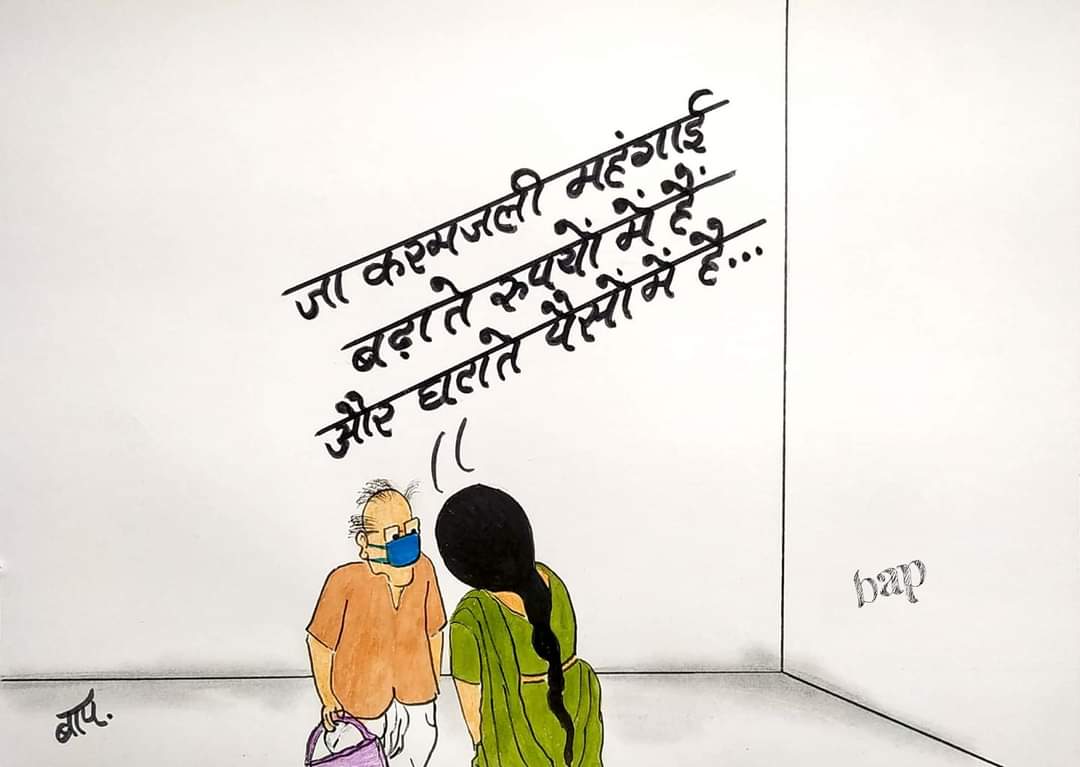 जा करमजली महंगाई
बढ़ाते रुपयों में हैं
और घटाते पैसों में है...
bap
बाप.